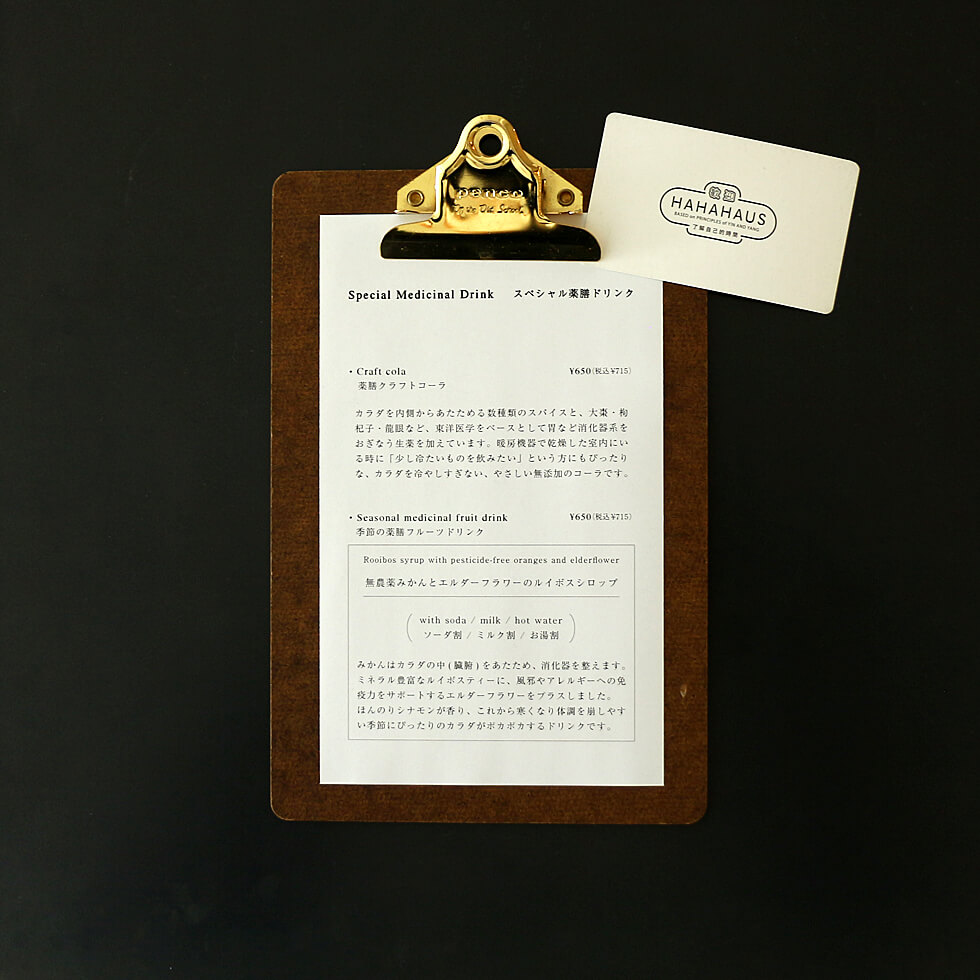 penco
HAHAHAUS
BASED on PRINCIPLES of YIN AND YANG
了解自己的時間
Special Medicinal Drink スペシャル薬膳ドリンク
・Craft cola ¥650(税込¥715)
薬膳クラフトコーラ
カラダを内側からあたためる数種類のスパイスと、大棗・枸
杞子・龍眼など、東洋医学をベースとして胃など消化器系を
おぎなう生薬を加えています。暖房機器で乾燥した室内にい
る時に「少し冷たいものを飲みたい」という方にもぴったり
な、カラダを冷やしすぎない、やさしい無添加のコーラです。
・Seasonal medicinal fruit drink ¥650(税込¥715)
季節の薬膳フルーツドリンク
Rooibos syrup with pesticide-free oranges and elderflower
無農薬みかんとエルダーフラワーのルイボスシロップ
with soda / milk / hot water
ソーダ割 / ミルク割 / お湯割
みかんはカラダの中(臓腑)をあたため、消化器を整えます。
ミネラル豊富なルイボスティーに、風邪やアレルギーへの免
疫力をサポートするエルダーフラワーをプラスしました。
ほんのりシナモンが香り、これから寒くなり体調を崩しやす
い季節にぴったりのカラダがポカポカするドリンクです。